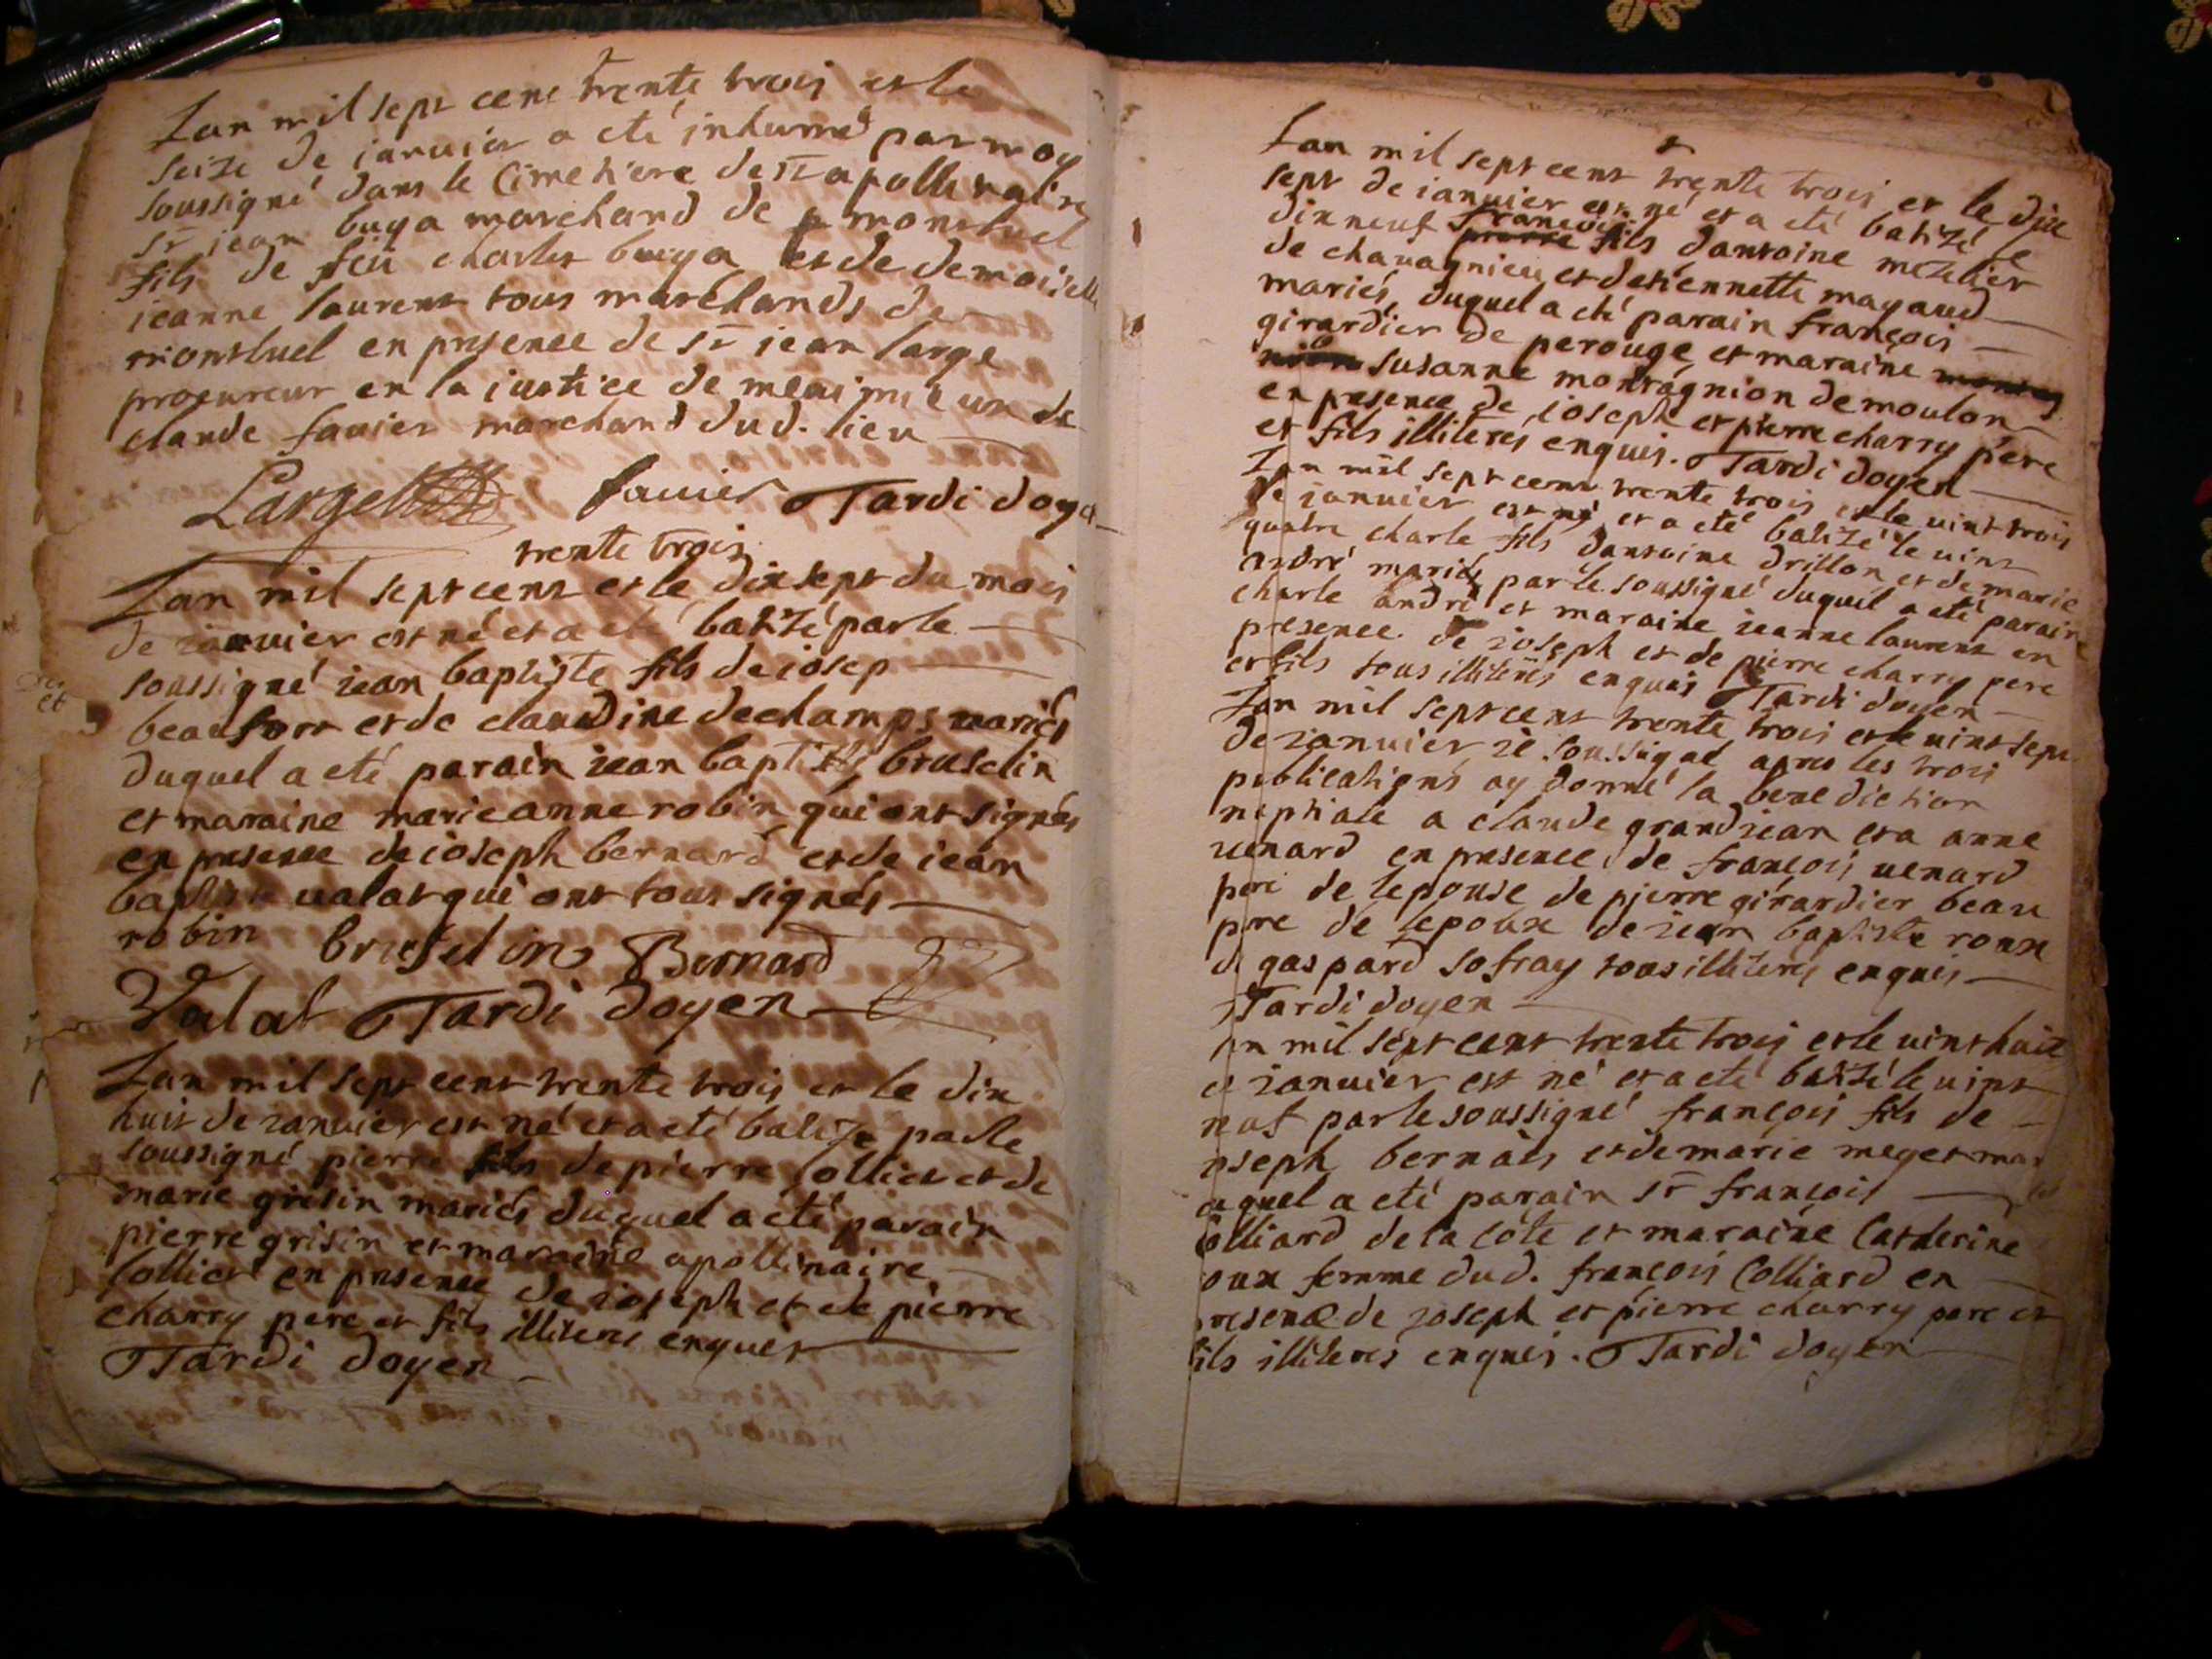 Lan mil sept cent trente trois et le
seize de ianuier a eté inhumé par moy
soussigné dans le Cimetiere de st apollinaire
sr iean buga marchand de montluel
fils de feu charles buga et de demoiselle
ieanne laurent tous marchands de
montluel en presence de sr iean large
procureur en la iustice de meximieux de
claude fauier marchand dud. lieu
Large fauier Tardi doyen
trente trois
Lan mil sept cent et le dix sept du mois
de ianuier est né et a eté batizé par le
soussigné iean baptiste fils de iosep
beaufort et de claudine dechamps mariés
duquel a eté parain iean baptiste bruselin
et maraine marie anne robin qui ont signés
en presence de ioseph bernard et de iean
baptiste ualat qui ont tous signés
robin bruselin Bernard
Valat Tardi doyen
Lan mil sept cent trente trois et le dix
huit de ianuier est né et a eté batize par le
soussigné pierre fils de pierre Collier et de
marie grisin mariés duquel a eté parain
pierre grisin et maraine apollinaire
Collier en presence de ioseph et de pierre
charry pere et fils illiterés enquis
Tardi doyen
Lan mil sept cent trente trois et le dix
sept de ianuier est né et a eté batizé le
dixneuf francois fils dantoine metelier
de chauagnieu et detiennette mayaud
mariés, duquel a eté parain françois
girardier de perouge et maraine
susanne montagnion de moulon
en presence de ioseph et pierre charry pere
et fils illiterés enquis. Tardi doyen
Lan mil sept cent trente trois et le uint trois
de ianuier est né et a eté batizé le uint
quatre charle fils dantoine drillon et de marie
andré mariés par le soussigné duquel a eté parain
charle andré et maraine ieanne laurent en
presence de ioseph et de pierre charry pere
et fils tous illiterés enquis Tardi doyen
Lan mil sept cent trente trois et le uint sept
de ianuier ie soussigné apres les trois
publications ay donné la benediction
nuptiale a claude grandiean et a anne
uenard en presence de françois uenard
pere de lepouse de pierre girardier beau
pere de lepoux de iean baptiste roux
de gaspard sofray tous illiterés enquis
Tardi doyen
an mil sept cent trente trois et le uint huit
e ianuier est né et a eté batizé le uint
neuf par le soussigné françois fils de
oseph bernais et de marie meget mar
uquel a eté parain sr françois
olliard de la cote et maraine Catherine
oux femme dud. françois Colliard en
resence de ioseph et pierre charry pere et
ils illiterés enquis. Tardi doyen